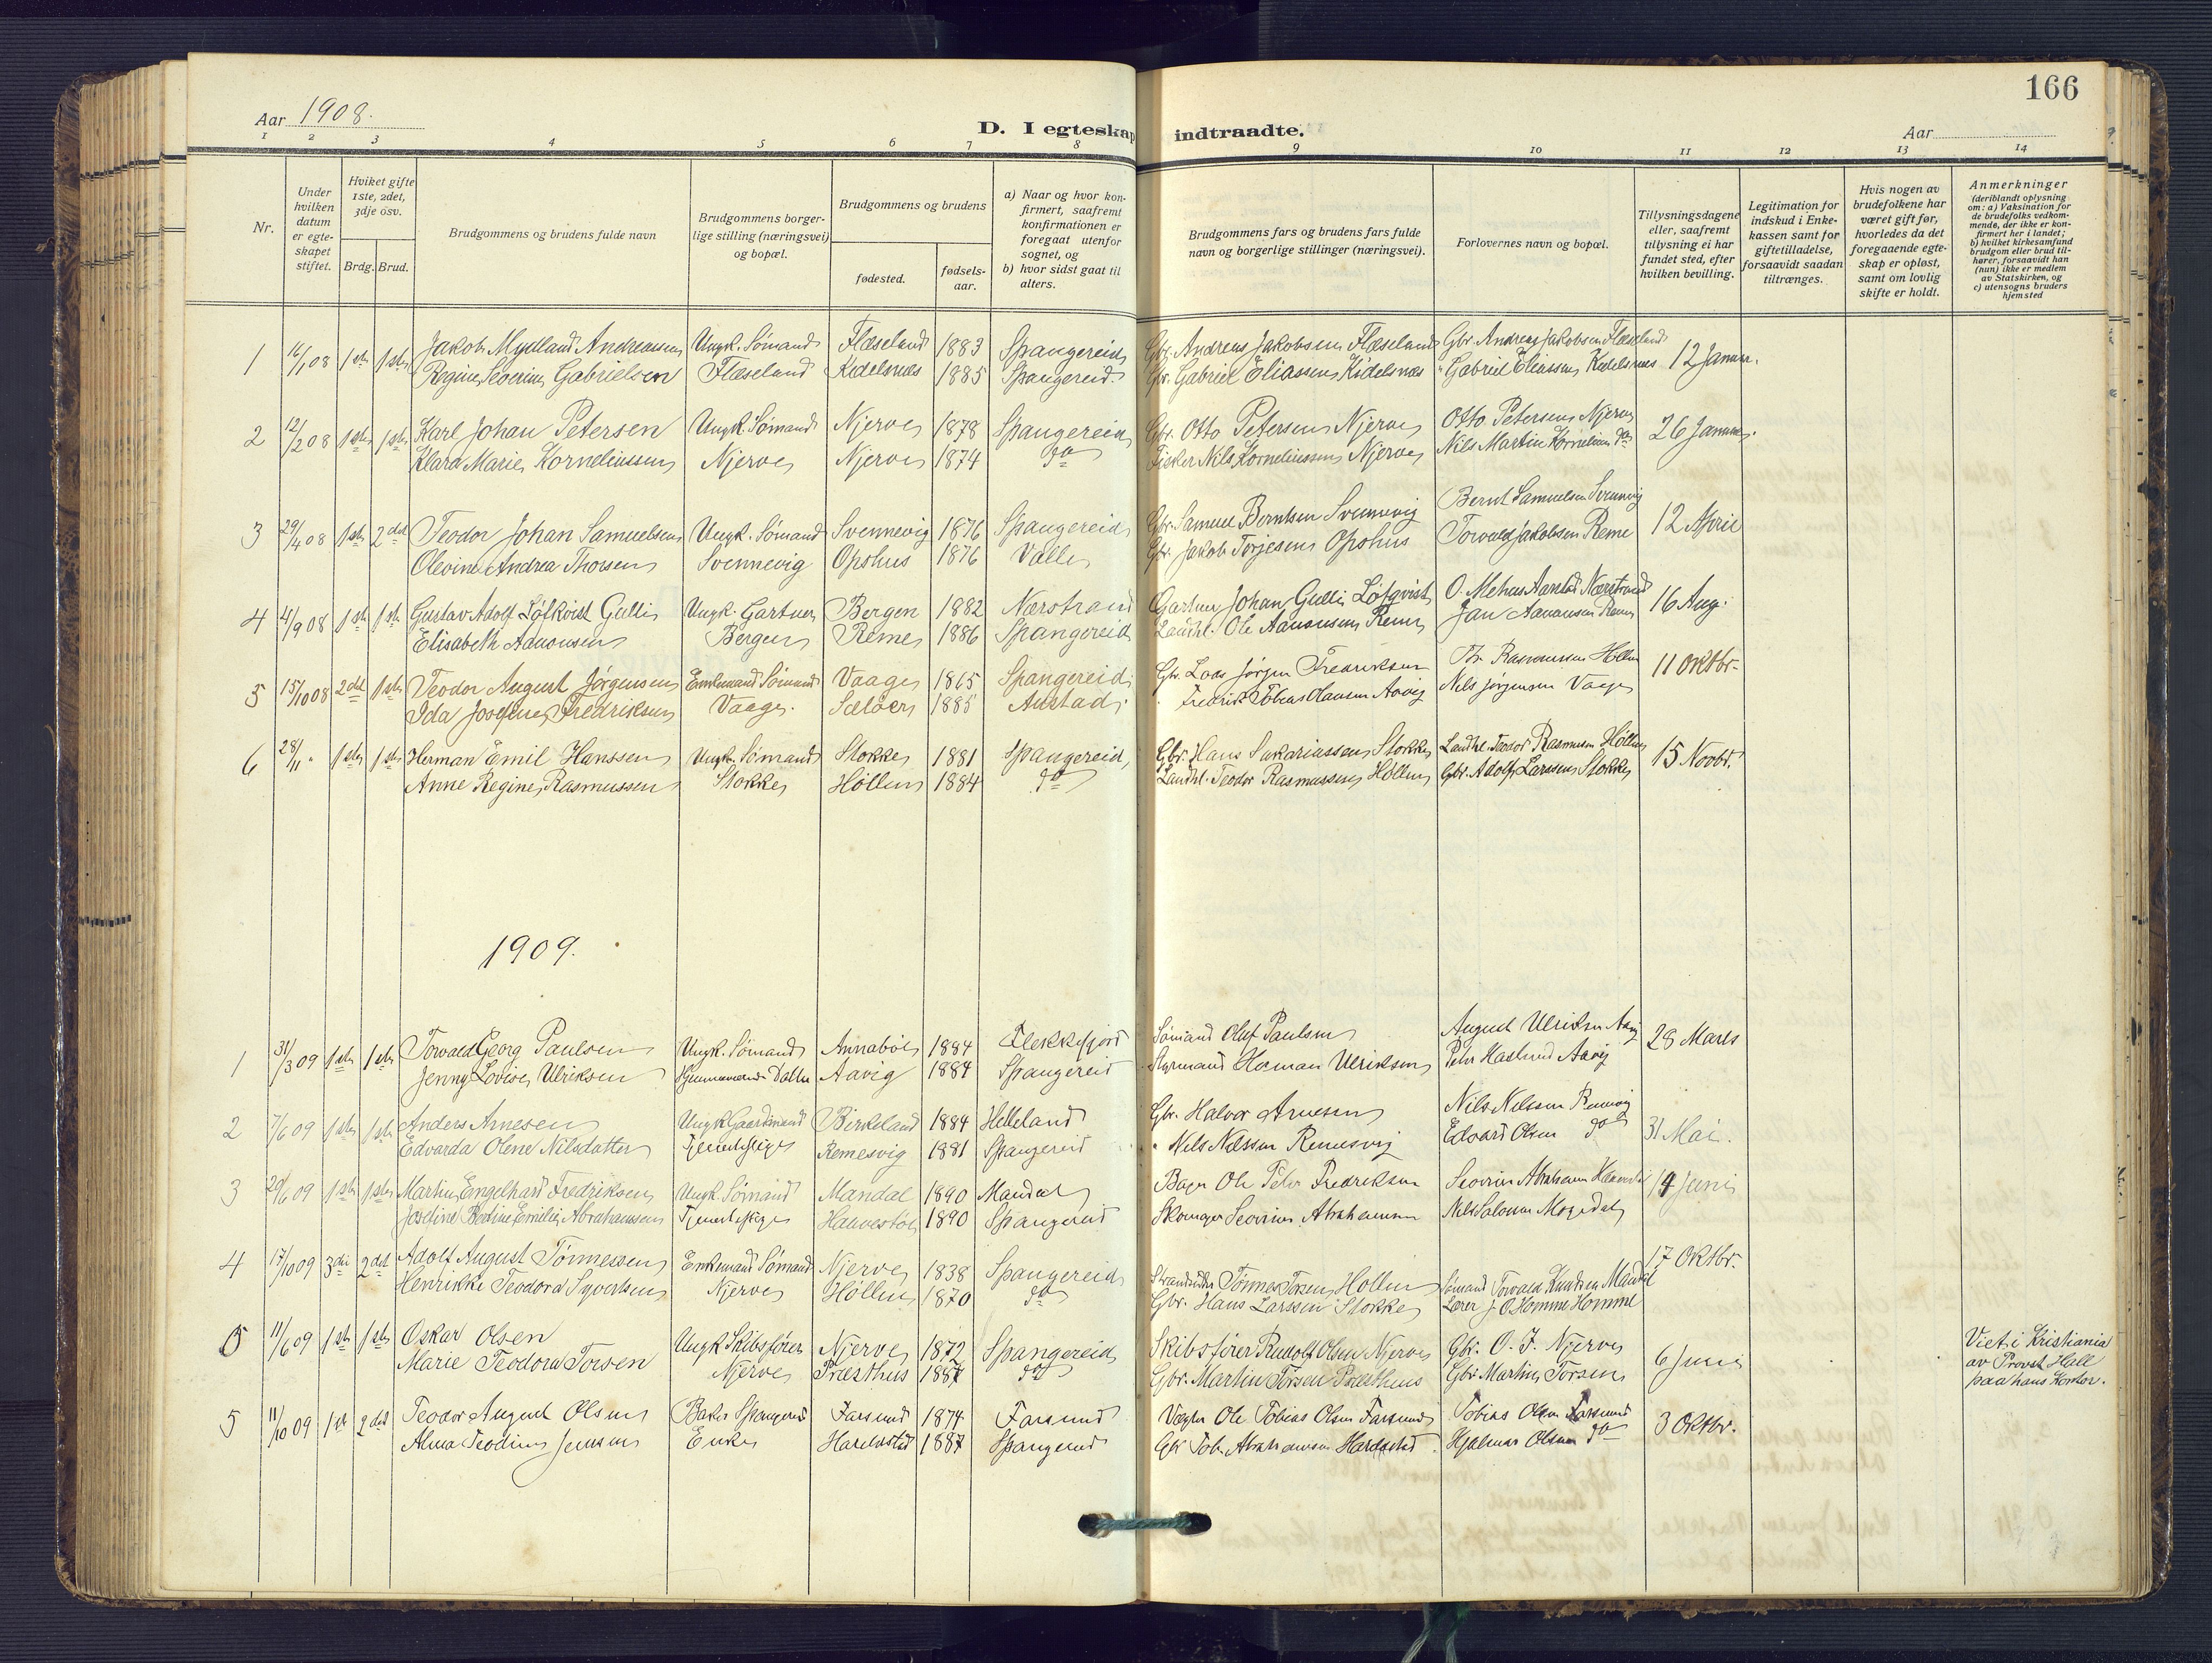 166
Aar 1908.
D. I egteskap indtraadte.
Aar
1 2 3 4 5 6 7 8 9 10 11 12 13 14
Nr.
Under hvilken datum er egteskapet stiftet.
Hviket gifte 1ste, 2det, 3dje osv.
Brdg. Brud.
Brudgommens og brudens fulde navn
Brudgommens borgerlige stilling (næringsvei) og bopæl.
Brudgommens og brudens
fødested.
fødselsaar.
a) Naar og hvor konfirmert, saafremt konfirmationen er foregaat utenfor sognet, og
b) hvor sidst gaat til alters.
Brudgommens fars og brudens fars fulde navn og borgerlige stillinger (næringsvei).
Forlovernes navn og bopæl.
Tillysningsdagene eller, saafremt tillysning ei har fundet sted, efter hvilken bevilling.
Legitimation for indskud i Enkekassen samt for giftetilladelse, forsaavidt saadan tiltrænges.
Hvis nogen av brudefolkene har været gift før, hvorledes da det foregaaende egteskap er opløst, samt om lovlig skifte er holdt.
Anmerkninger (deriblandt oplysning om: a) Vaksination for de brudefolks vedkommende, der ikke er konfirmert her i landet; b) hvilket kirkesamfund brudgom eller brud tilhører, forsaavidt han (hun) ikke er medlem av Statskirken, og c) utensogns bruders hjemsted
1 16/1 08 1ste 1ste Jakob Mydland Andreassen Ungk. Sømand Flæseland 1883 Spangereid Gbr. Andreas Jakobsen Flæseland Gbr. Andreas Jakobsen Flæseland 12 Januar.
Regine Severine Gabrielsen Flæseland Kidelsnæs 1885 Spangereid. Gbr. Gabriel Eliassen Kidelsnæs " Gabriel Eliassen Kidelsnæs
2 12/2 08 1ste 1ste Karl Johan Petersen Ungk. Sømand Njerve 1878 Spangereid Gbr. Otto Petersen Njerve Otto Petersen Njerve 26 Januar.
Klara Marie Korneliussen Njerve Njerve 1874 do Fisker Nils Korneliussen Njerve Nils Martin Kornelius do
3 29/4 08 1ste 2det Teodor Johan Samuelsen Ungk. Sømand Svennevig 1876 Spangereid Gbr. Samuel Berntsen Svennevig Bernt Samuelsen Svennevig 12 April
Olevine Andrea Thorsen Svennevig Opshus 1876 Valle Gbr. Jakob Torjesen Opshus Torvald Jakobsen Reme
4 4/9 08 1ste 1ste Gustav Adolf Löfkvist Gulli Ungk. Gartner Bergen 1882 Nærstrand Gartner Johan Gulli Löfgvist O. Mehus Aarstad Nærstrand 16 Aug.
Elisabeth Aanonsen Bergen Reme 1886 Spangereid Landhl. Ole Aanonsen Reme Jan Aanonsen Reme
5 15/10 08 2det 1ste Teodor August Jørgensen Enkemand Sømand Vaage 1865 Spangereid Gbr. Lods Jørgen Fredriksen Th. Rasmussen Høllen 11 Oktbr.
Ida Josefine Fredriksen Vaage. Sæløer 1885 Austad Fredrik Tobias Olausen Aavig Nils Jørgensen Vaage
6 28/11 " 1ste 1ste Herman Emil Hanssen Ungk. Sømand Stokke 1881 Spangereid Gbr. Hans Sakariassen Stokke Landhl. Teodor Rasmussen Høllen 15 Novbr.
Anne Regine Rasmussen Stokke Høllen 1884 do Landhl. Teodor Rasmussen Høllen Gbr. Adolf Larssen Stokke
1909.
1 31/3 09 1ste 1ste Torvald Georg Paulsen Ungk. Sømand Annabøe 1884 Flekkefjord Sømand Oluf Paulsen August Ulriksen Aavig 28 Marts
Jenny Lovise Ulriksen Hjemmeværende Datter Aavig 1884 Spangereid Styrmand Herman Ulriksen Peter Haslund Aavig
2 7/6 09 1ste 1ste Anders Arnesen Ungk. Gaardmand Birkeland 1884 Helleland Gbr. Halvor Arnesen Nils Nilssen Remesvig 31 Mai.
Edvarda Olene Nilsdatter Tjenestepige Remesvig 1881 Spangereid " Nils Nilssen Remesvig Edvard Olsen do
3 29/6 09 1ste 1ste Martin Engelhard Fredriksen Ungk. Sømand Mandal 1890 Mandal Bager Ole Peter Fredriksen Severin Abrahamsen 14 Juni
Josefine Bertine Emilie Abrahamsen Tjenestepige Haavestøl 1890 Spangereid Skomager Severin Abrahamsen Nils Salomon
4 17/10 09 3die 2det Adolf August Tønnessen Enkemand Sømand Njerve 1838 Spangereid Strandsidder Tønnes Torsen Hollen Sømand Torvald Knudsen Mandal 17 Oktbr.
Henrikke Teodora Syvertsen Njerve Høllen 1870 do Gbr. Hans Larssen Stokke Lærer J. O. Homme Homme
5 11/6 09 1ste 1ste Oskar Olsen Ungk Skibsfører Njerve 1872 Spangereid Skibsfører Rudolf Olsen Njerve Gbr. O. J. Njerve 6 Juni Viet i Kristiania
Marie Teodora Torsen Njerve Præsthus 1887 do Gbr. Martin Torsen Præsthus Gbr Martin Torsen av Provst Hall
paa hans Kontor.
5 11/10 09 1ste 2det Teodor August Olsen Baker Spangereid Farsund 1874 Farsund Vægter Ole Tobias Olsen Farsund Tobias Olsen Farsund 3 Oktbr.
Alma Teodine Jensen Enke Harelvstad 1887 Spangereid Gbr Tob. Abrahamsen Hjalmar Olsen do